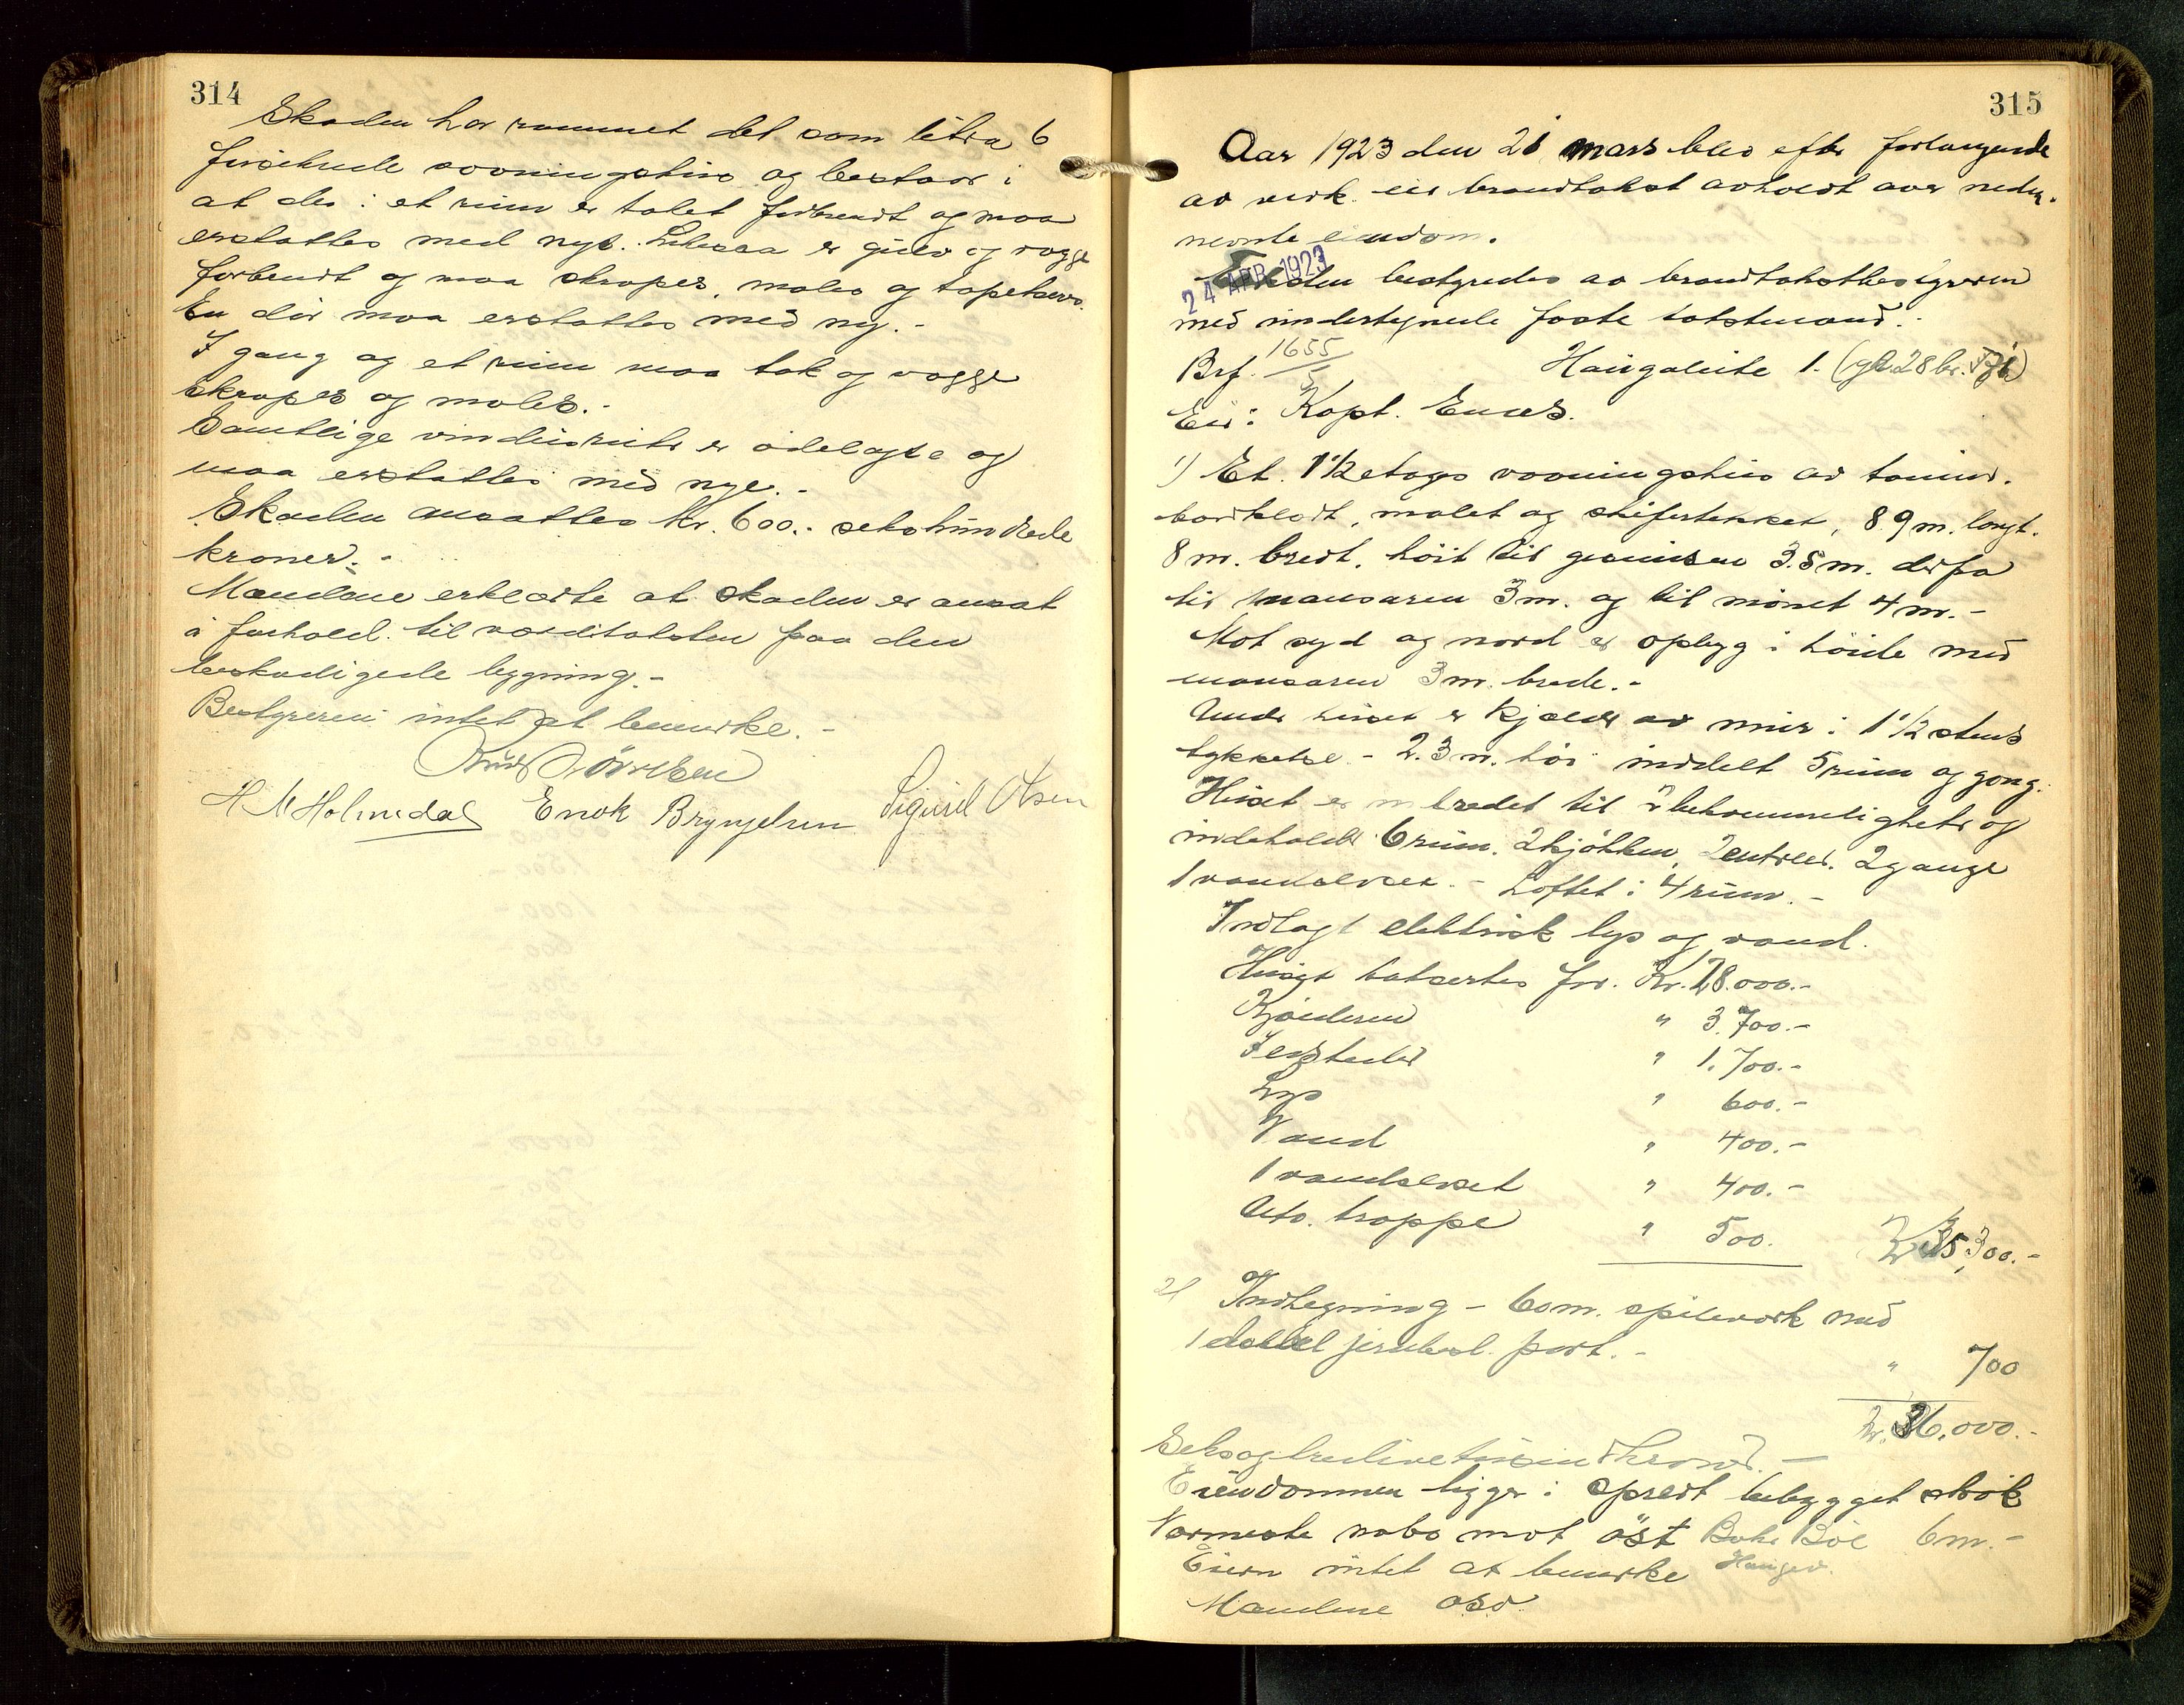 314
Skaden har rammet det som litra 6
forsikrede vooningshus og bestaar i
at der i et rum er taket forbrendt og maa
erstattes med nyt. Likesaa er gulv og vægge
forbrendt og maa skrapes, males og tapetseres.
En dör maa erstattes med ny. -
I gang og et rum maa tak og vægge
skrapes og males. -
Samtlige vindusruter er ödelagte og
maa erstattes med nye. -
Skaden ansattes kr. 600.- sekshundrede
kroner. -
Mændene erklærte at skaden er ansat
i forhold til værditaksten paa den
beskadigede bygning. -
Bestyreren intet at bemerke. -
Knut
H M Holmedal Enok Bryngelsen Sigurd Olsen
315
Aar 1923 den 21 mars blev efter forlangende
av vedk. eier brandtakst avholdt over neden-
nevnte eiendom.
24 APR 1923
Forretten bestyredes av brandtakstbestyreren
med undertegnede faste takstmænd. -
Brf. 1655/5 Haugaleite 1. (gr 28 br.
Eier: Kapt. Enes.
1) Et 1 1/2 etages vooningshus av tömmer.
bordklædt, malet og skifertækket, 8.9 m. langt.
8 m. bredt, höit til gesimsen 3.5 m. derfra
til mansaren 3 m. og til mönet 4 m. -
Mot syd og nord er opbyg i höide med
mansaren 3 m. brede. -
Under huset er kjælder av mur i 1 1/2 stens
tykkelse - 2.3 m. höi inddelt 5 rum og gang.
Huset er indredet til 2 bekvemmeligheter og
indeholder 6 rum. 2 kjökken, 2 entreer. 2 gange
1 vandkloset. - Loftet i 4 rum. -
Indlagt elektrisk lys og vand.
Huset takseretes for. Kr. 28.000.-
Kjælderen " 3.700.-
Ildsteder " 1.700.-
Lys " 600.-
Vand " 400.-
1 vandkloset " 400.-
Utv. trappe " 500. Kr 35,300.-
2) Indhegning - 60 m. spilevork med
1 dobbel jernbesl. port. - " 700
Kr. 36.000.-
Seksogtredivetusindkroner. -
Eiendommen ligger i spredt bebygget strök
Nærmeste nabo mot öst 6 m. -
Eieren intet at bemerke
Mændene osv.